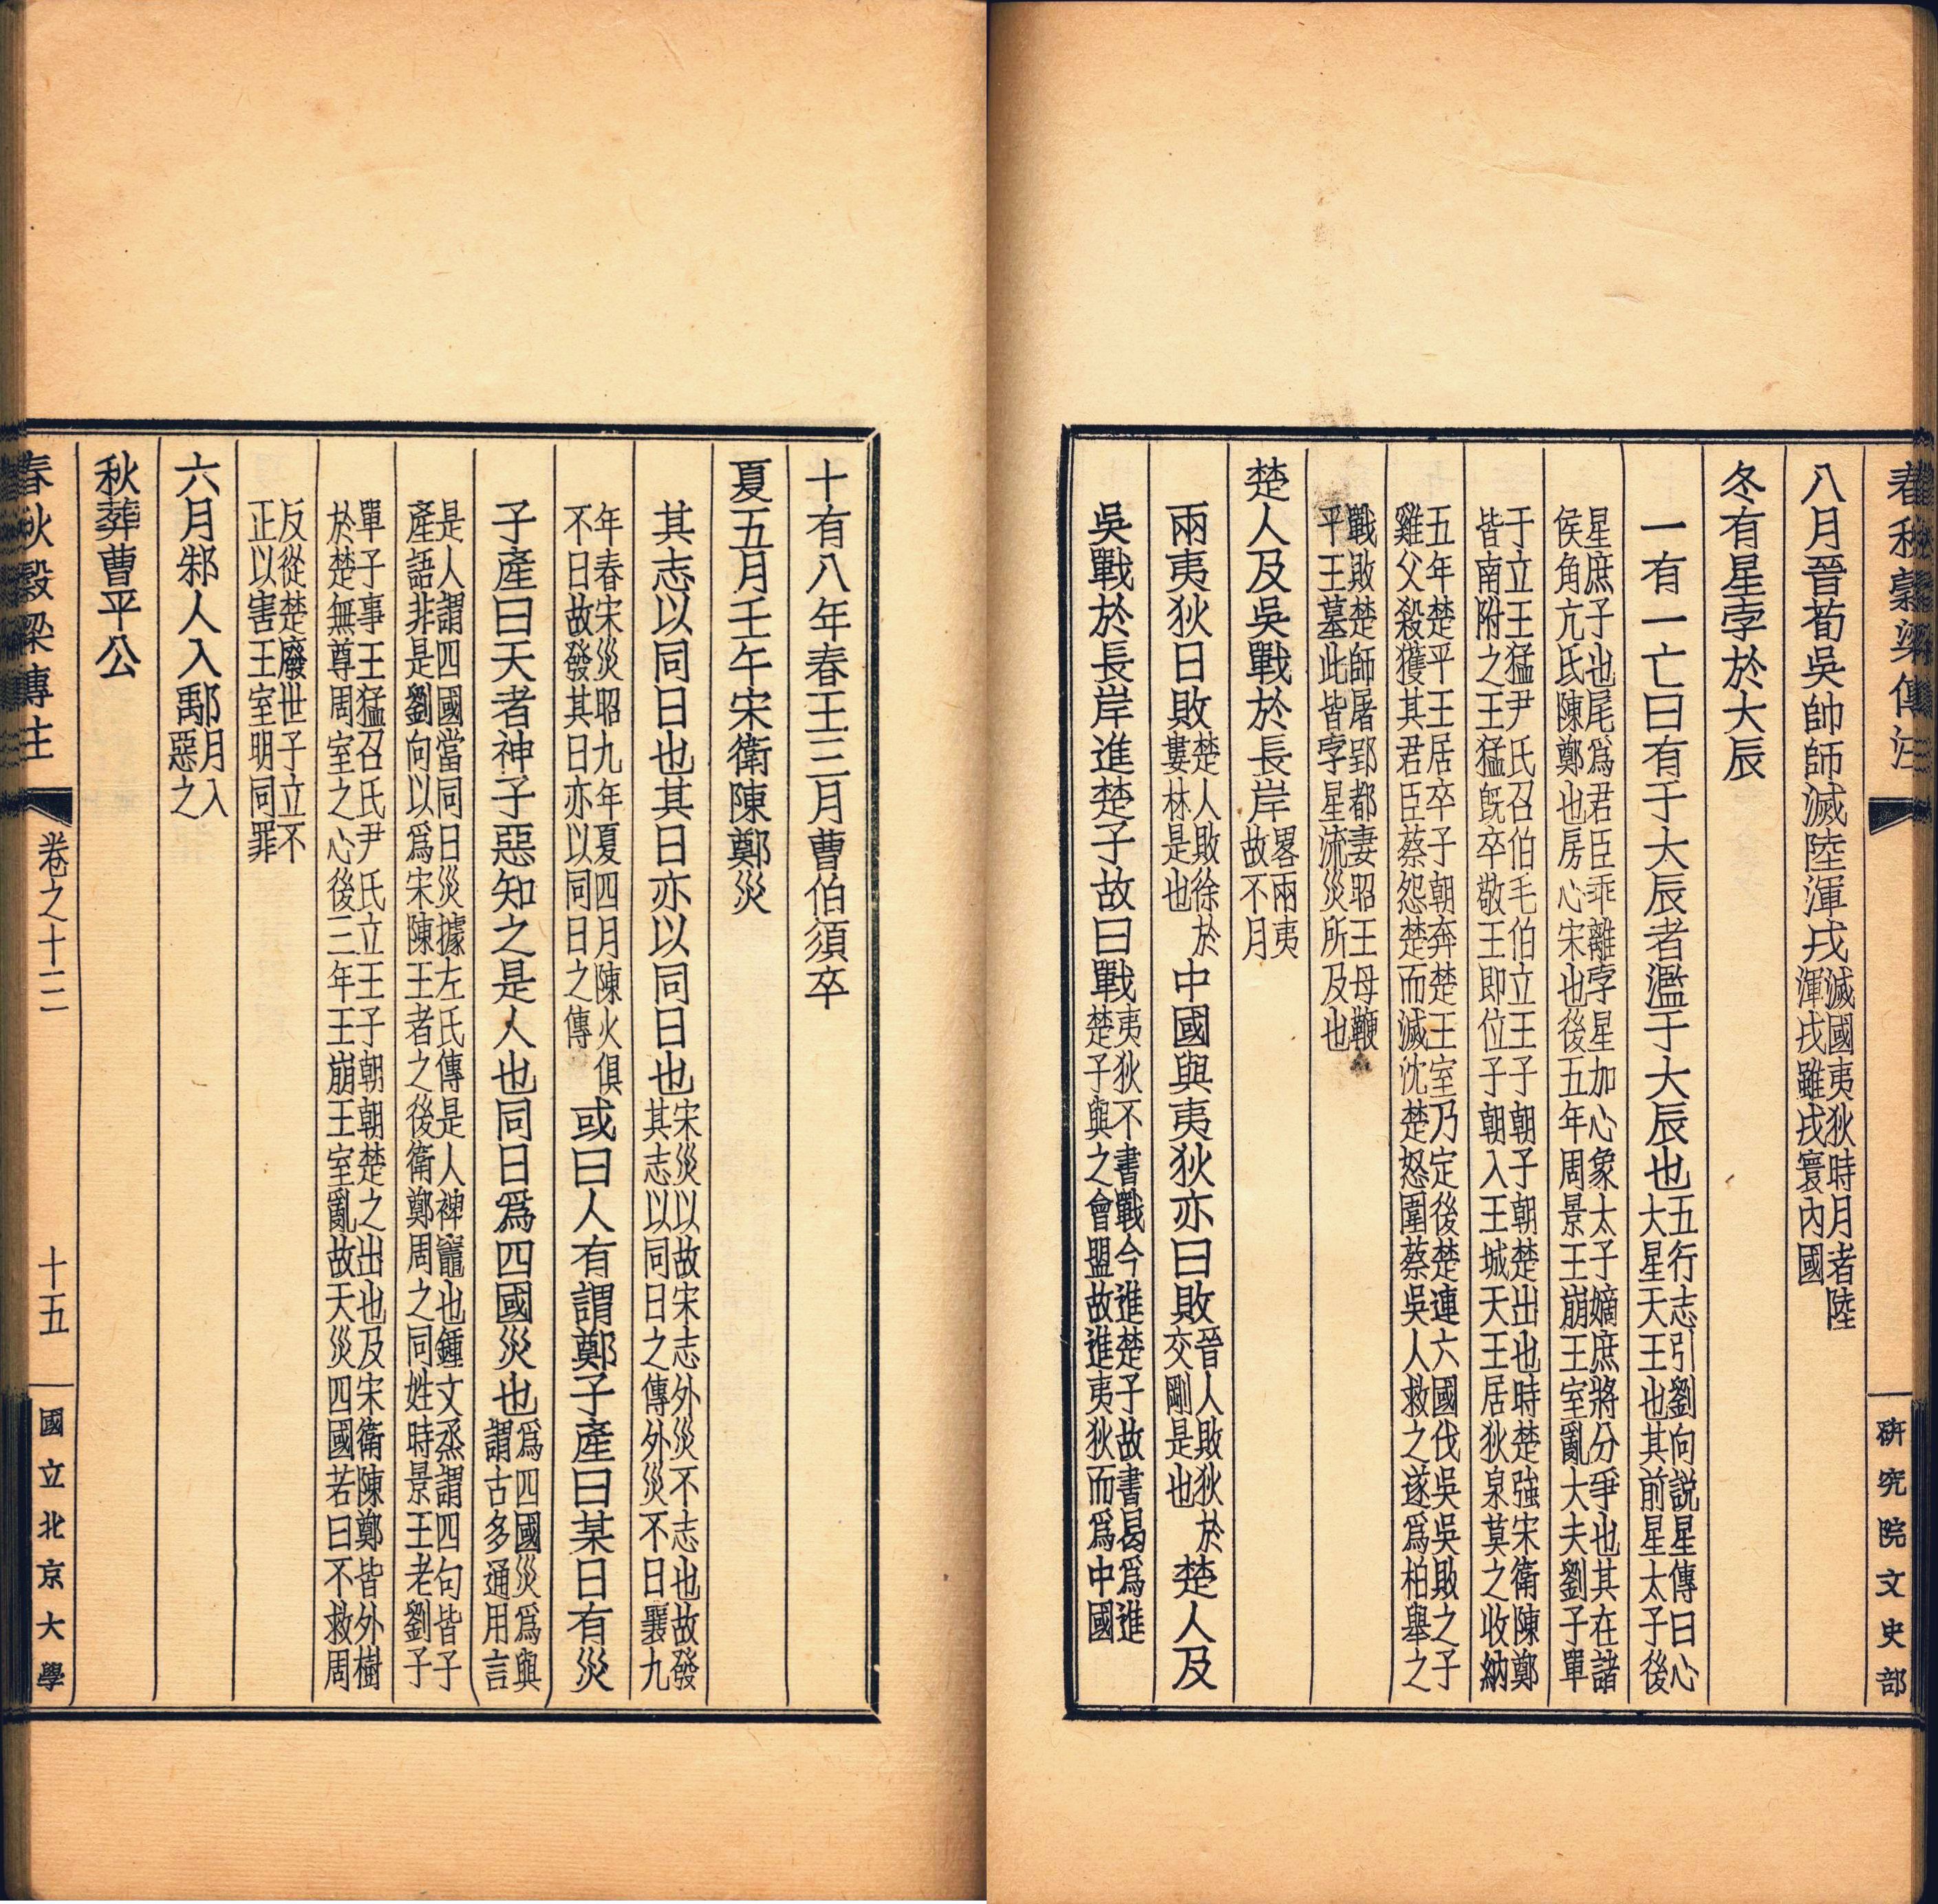 春秋穀梁傳注
研究院文史部
八月晉荀吳帥師滅陸渾戎滅國夷狄時月者陸
渾戎雖戎寰內國
冬有星孛於大辰
一有一亡曰有于大辰者濫于大辰也五行志引劉向說星傳曰心
大星天王也其前星太子後
星庶子也尾爲君臣乖離孛星加心象太子嫡庶將分爭也其在諸
侯角亢氐陳鄭也房心宋也後五年周景王崩王室亂大夫劉子單
于立王猛尹氏召伯毛伯立王子朝子朝楚出也時楚強宋衛陳鄭
皆南附之王猛旣卒敬王即位子朝入王城天王居狄泉莫之收納
五年楚平王居卒子朝奔楚王室乃定後楚連六國伐吳吳敗之于
雞父殺獲其君臣蔡怨楚而滅沈楚怒圍蔡吳人救之遂爲柏舉之
戰敗楚師屠郢都妻昭王母鞭
平王墓此皆孛星流災所及也
楚人及吳戰於長岸畧兩夷
故不月
兩夷狄曰敗楚人敗徐於
婁林是也中國與夷狄亦曰敗晉人敗狄於
交剛是也楚人及
吳戰於長岸進楚子故曰戰夷狄不書戰今進楚子故書曷爲進
楚子與之會盟故進夷狄而爲中國
十有八年春王三月曹伯須卒
夏五月壬午宋衛陳鄭災
其志以同日也其日亦以同日也宋災以故宋志外災不志也故發
其志以同日之傳外災不日襄九
年春宋災昭九年夏四月陳火俱
不日故發其日亦以同日之傳或曰人有謂鄭子產曰某日有災
子產曰天者神子惡知之是人也同日爲四國災也爲四國災爲與
謂古多通用言
是人謂四國當同日災據左氏傳是人裨竈也鍾文烝謂四句皆子
產語非是劉向以爲宋陳王者之後衛鄭周之同姓時景王老劉子
單子事王猛召氏尹氏立王子朝朝楚之出也及宋衛陳鄭皆外樹
於楚無尊周室之心後三年王崩王室亂故天災四國若曰不救周
反從楚廢世子立不
正以害王室明同罪
六月邾人入鄅月入
惡之
秋葬曹平公
春秋穀梁傳注
卷之十三
十五
國立北京大學